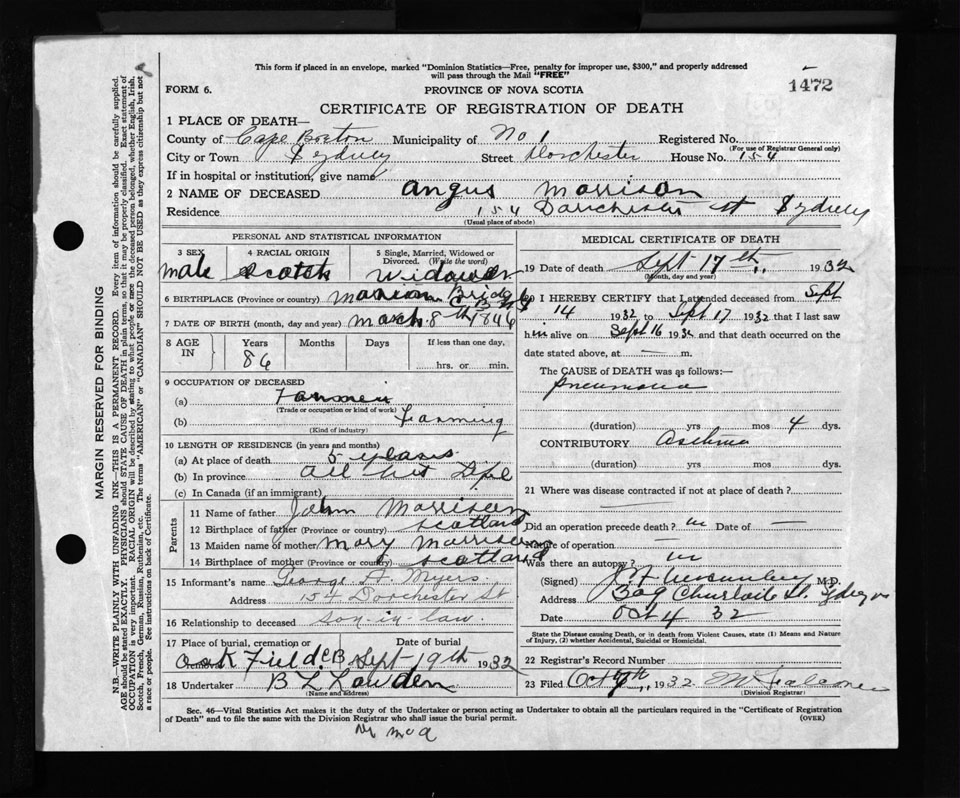 This form if placed in an envelope, marked "Dominion Statistics—Free, penalty for improper use, $300," and properly addressed
will pass through the Mail "FREE"
1472
FORM 6. PROVINCE OF NOVA SCOTIA
CERTIFICATE OF REGISTRATION OF DEATH
1 PLACE OF DEATH—
County of Cape Breton Municipality of No 1 Registered No.
(For use of Registrar General only)
City or Town Sydney Street Dorchester House No. 154
If in hospital or institution, give name
2 NAME OF DECEASED Angus Morrison
Residence 154 Dorchester St Sydney
(Usual place of abode)
PERSONAL AND STATISTICAL INFORMATION
3 SEX 4 RACIAL ORIGIN 5 Single, Married, Widowed or Divorced. (Write the word)
male Scotch Widower
6 BIRTHPLACE (Province or country) Marion Bridge
7 DATE OF BIRTH (month, day and year) March 8th 1846
8 AGE IN Years Months Days If less than one day.
86 hrs. or min.
9 OCCUPATION OF DECEASED
(a) Farmer
(Trade or occupation or kind of work)
(b) Farming
(Kind of industry)
10 LENGTH OF RESIDENCE (in years and months)
(a) At place of death 5 years
(b) In province All his life
(c) In Canada (if an immigrant)
Parents
11 Name of father John Morrison
12 Birthplace of father (Province or country) Scotland
13 Maiden name of mother Mary Morrison
14 Birthplace of mother (Province or country) Scotland
15 Informant's name George A. Myers
Address 154 Dorchester St
16 Relationship to deceased son-in-law
17 Place of burial, cremation or Date of burial
Field C B Sept 19th 1932
18 Undertaker B L
(Name and address)
MEDICAL CERTIFICATE OF DEATH
19 Date of death Sept 17th 1932
(Month, day and year)
20 I HEREBY CERTIFY that I attended deceased from Sept
14 1932 to Sept 17 1932 that I last saw
him alive on Sept 16 1932 and that death occurred on the
date stated above, at — m.
The CAUSE OF DEATH was as follows:
Pneumonia
(duration) yrs mos 4 dys.
CONTRIBUTORY Asthma
(duration) yrs mos dys.
21 Where was disease contracted if not at place of death?
Did an operation precede death? no Date of —
Nature of operation —
Was there an autopsy? no
(Signed) M.D.
Address 309 Charlotte St. Sydney
Date Oct 4 32
State the Disease causing Death, or in death from Violent Causes, state (1) Means and Nature
of Injury, (2) whether Accidental, Suicidal or Homicidal.
22 Registrar's Record Number
23 Filed Oct 1932
(Division Registrar)
Sec. 46—Vital Statistics Act makes it the duty of the Undertaker or person acting as Undertaker to obtain all the particulars required in the "Certificate of Registration
of Death" and to file the same with the Division Registrar who shall issue the burial permit. (OVER)
MARGIN RESERVED FOR BINDING
N.B.—WRITE PLAINLY WITH UNFADING INK—THIS IS A PERMANENT RECORD. Every item of information should be carefully supplied.
AGE should be stated EXACTLY. PHYSICIANS should STATE CAUSE OF DEATH in plain terms, so that it may be properly classified. Exact statement of
OCCUPATION is very important. RACIAL ORIGIN will be described by stating to what people or race the deceased person belonged, whether English, Irish,
Scotch, French, German, Russian, Ruthenian, etc. The terms "AMERICAN" or "CANADIAN" SHOULD NOT BE USED as they express citizenship but not
a race or people. See instructions on back of Certificate.